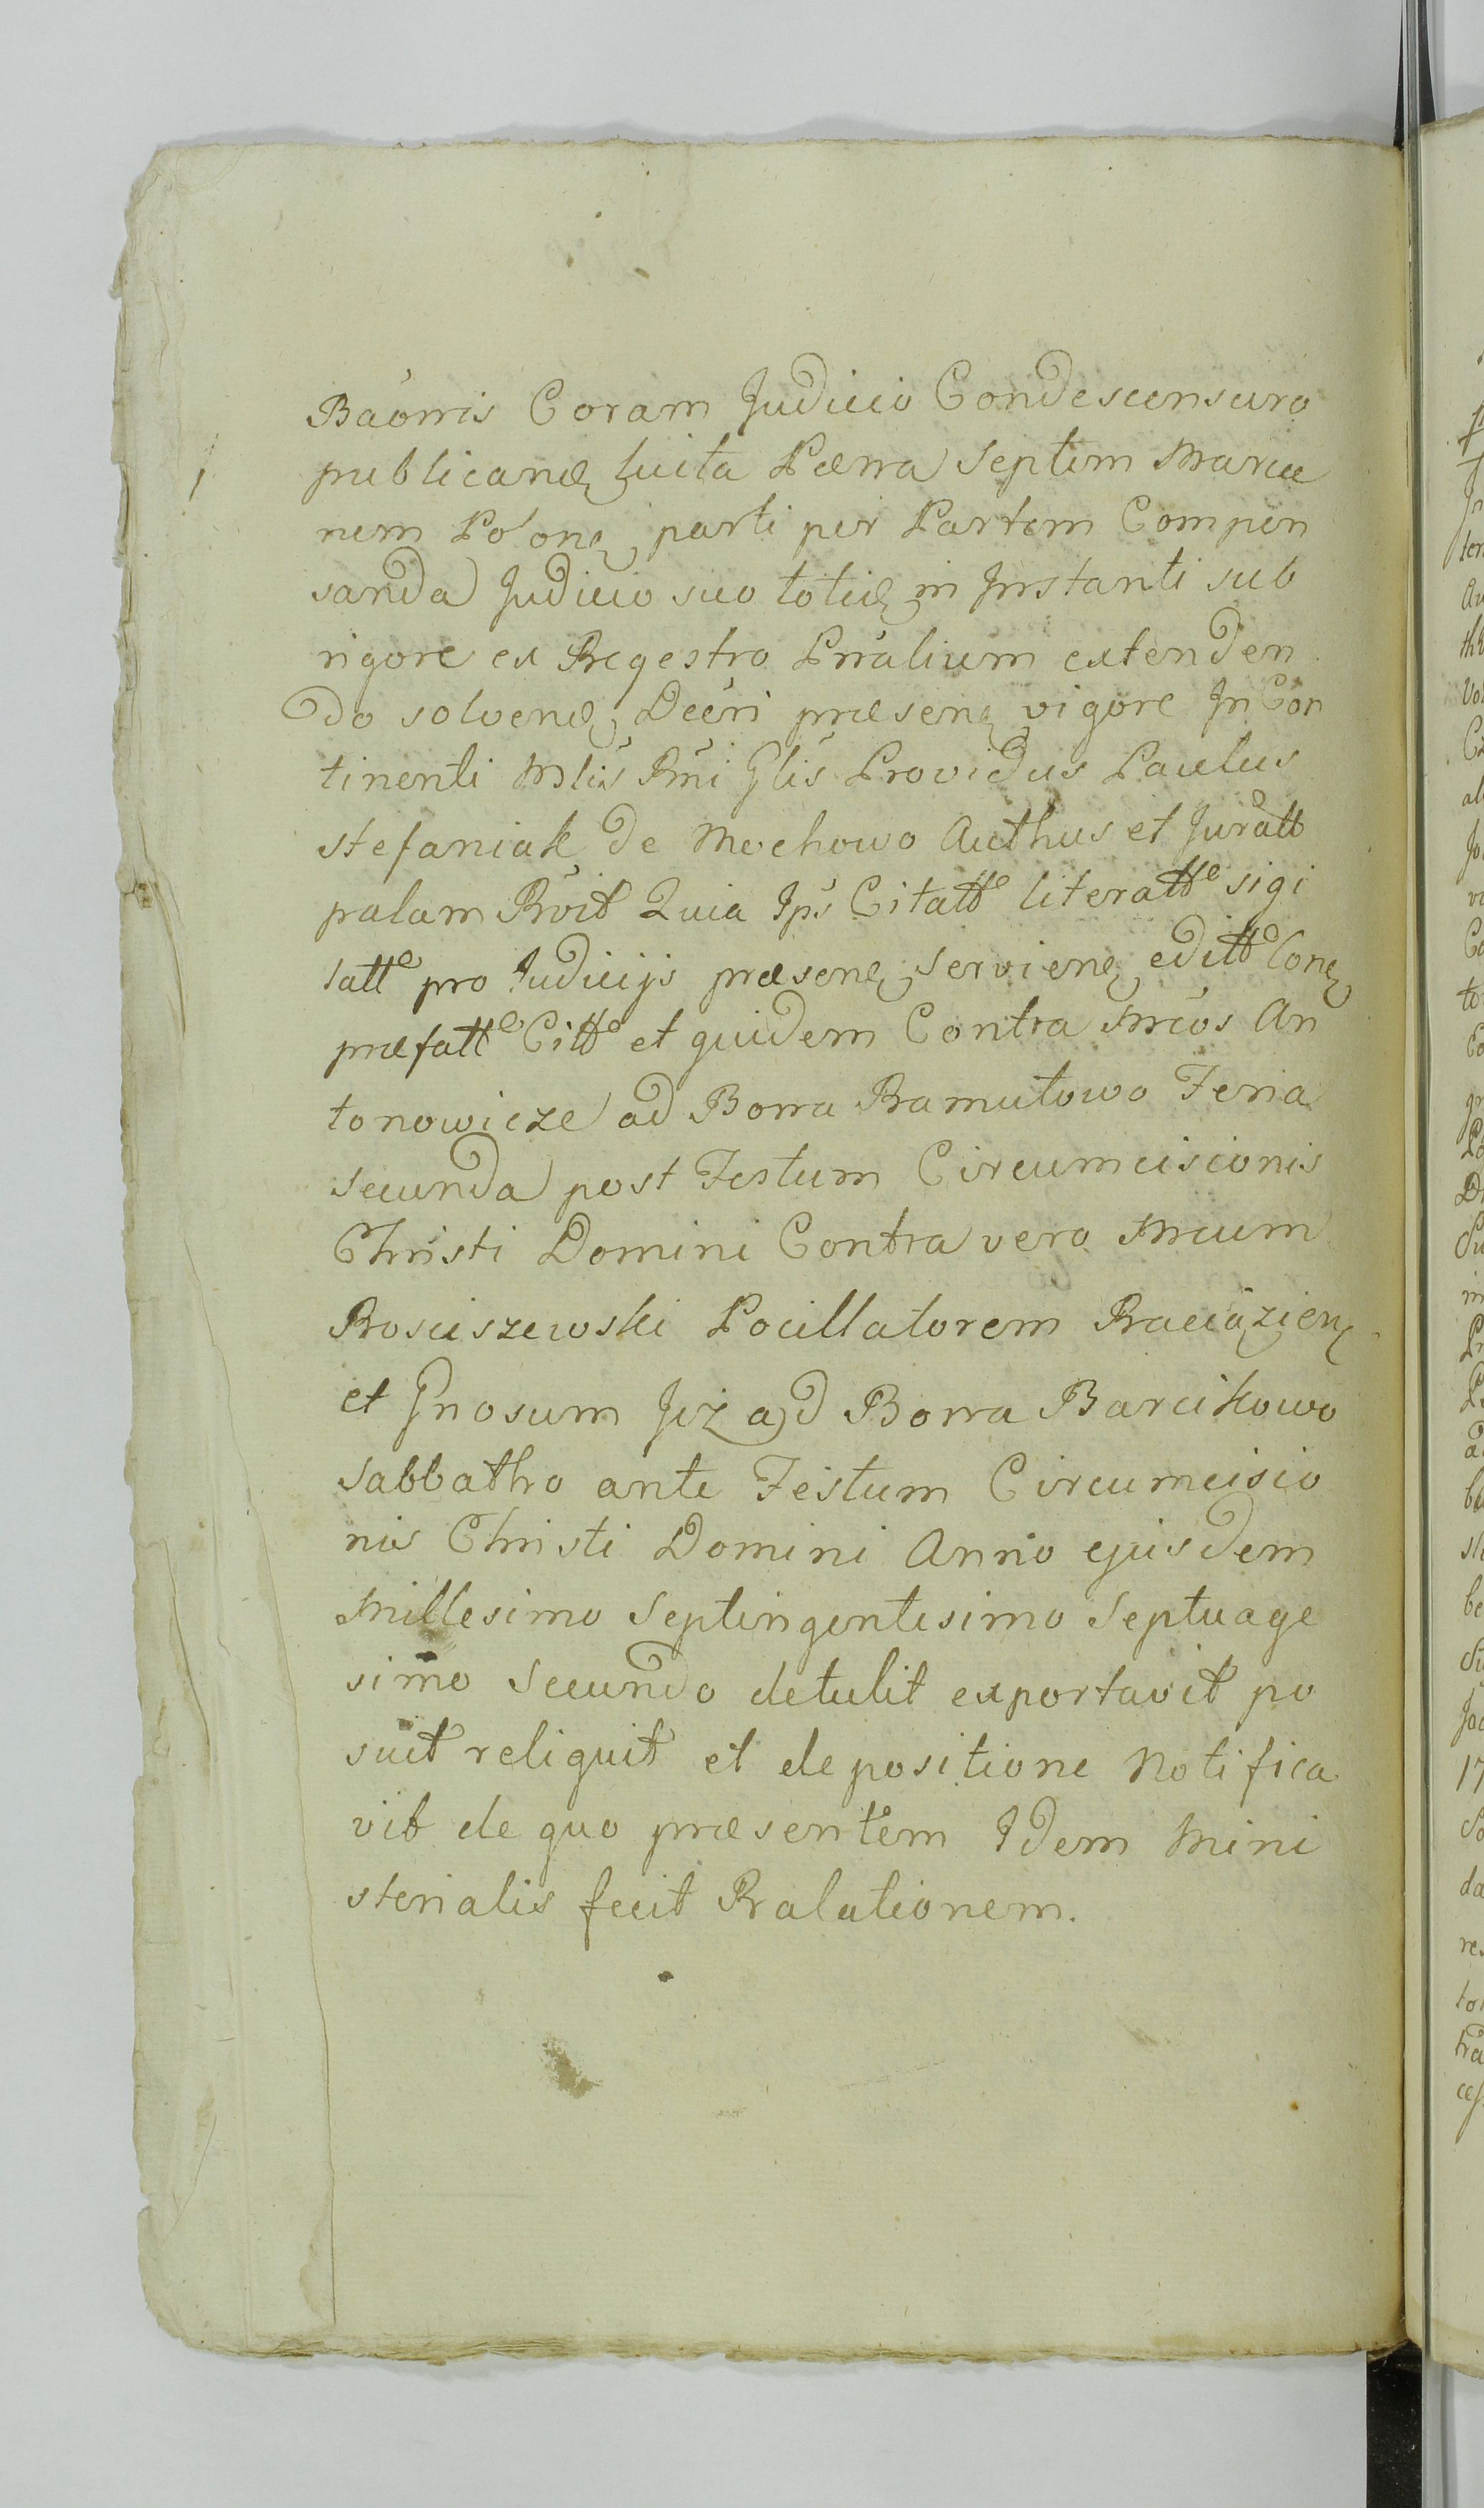 Baőnis Coram Judicio Condescensuro
publicanđ luita Pæna Septem Marca
nem Polonę parti per Partem Compen
sanda Judicio suo totidę in Instanti sub
rigore ex Regestro Pnalium extenden
do solvenđ Decri præsenę vigore In Con
tinenti Mlis Rni Glis Providus Paulus
stefaniak de Mochowo Authus et Juratt
palam Rvit Quia Ips Citatte literatte sigi
latte pro Judicijs præsenę servienę editte Conę
præfatte Citte et quidem Contra Mcos An
tonowicze ad Bona Ramutowo Feria
secunda post Festum Circumcisionis
Christi Domini Contra vero Mcum
Rosciszewski Pocillatorem Raciązienę
et Gnosum Jiż ad Bona Barcikowo
Sabbatho ante Festum Circumcisio
nis Christi Domini Anno ejusdem
Millesimo Septingentesimo Septuage
simo Secundo detulit exportavit po
suit reliquit et depositione Notifica
vit de quo præsentem Idem Mini
sterialis fecit Ralationem.